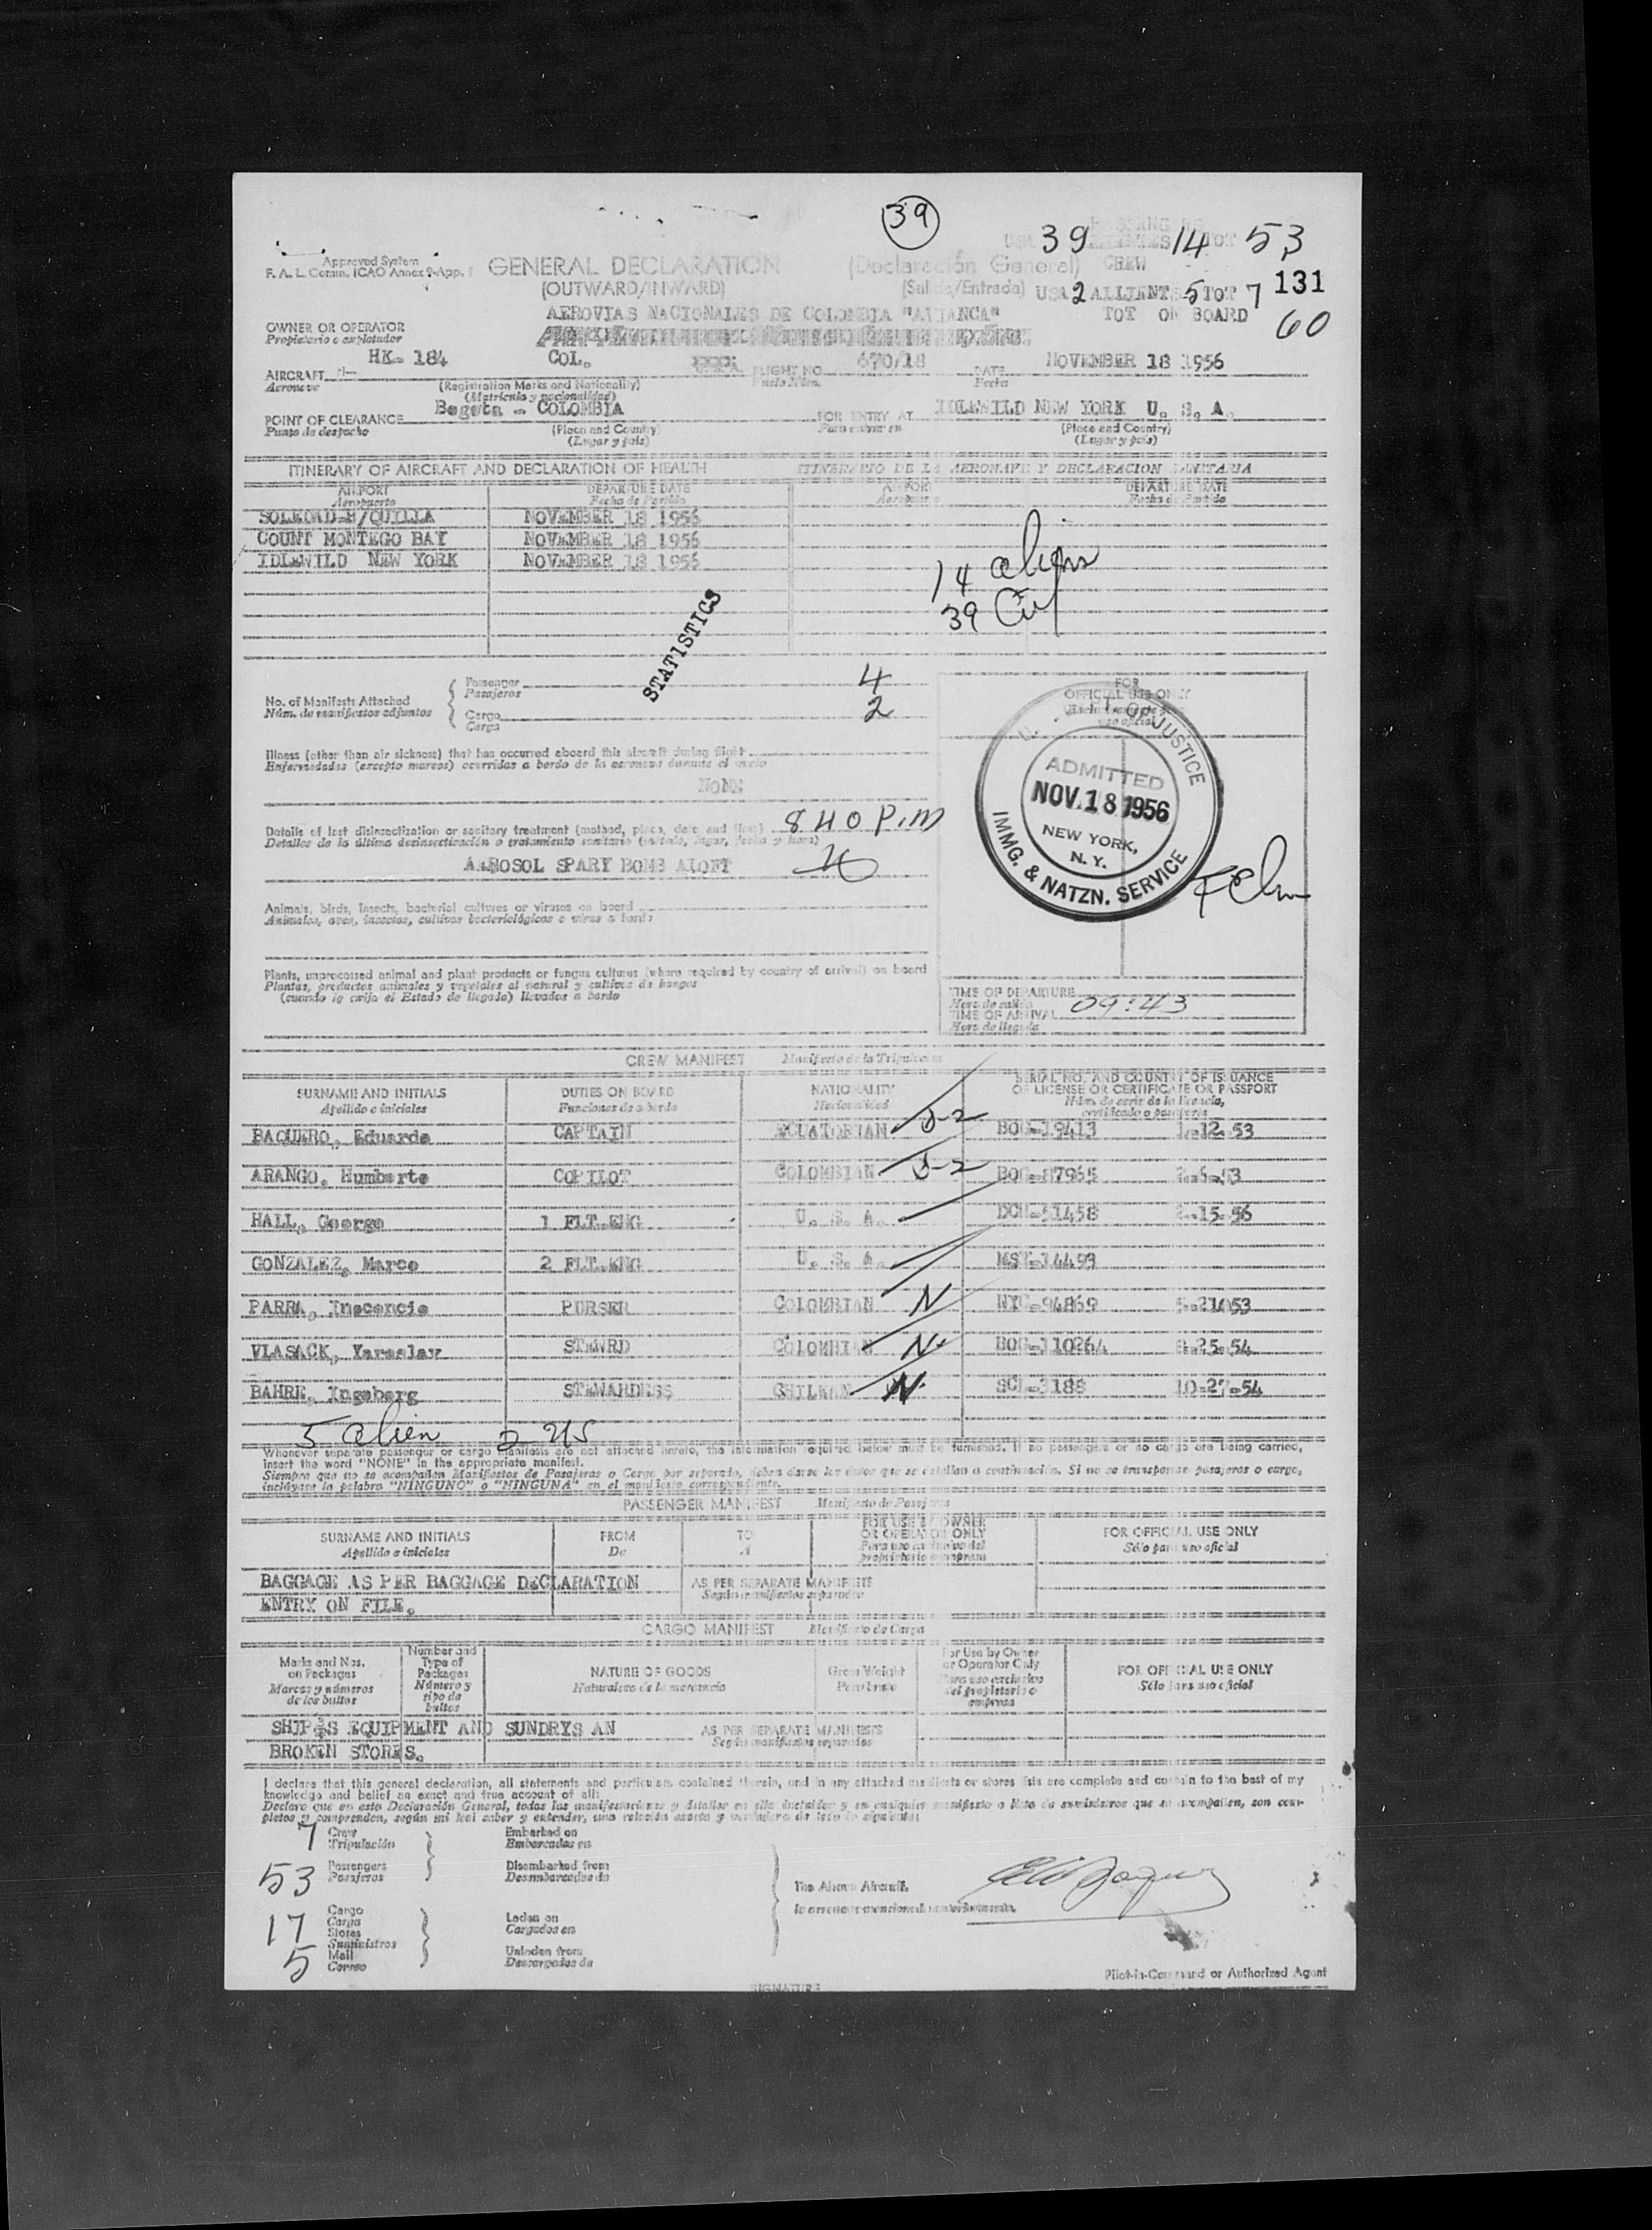 39
39 14 TOT 53
Approved System
F. A. L. Comm. ICAO Annex 9-App. 1
GENERAL DECLARATION (Declaración General) CREW
(OUTWARD/INWARD) (Salida/Entrada) USA 2 ALLIENTS 5 TOT 7 131
AEROVIAS NACIONALES DE COLOMBIA "AVIANCA" TOT ON BOARD 60
OWNER OR OPERATOR
Propietario o explotador
HK- 184 COL. 670/18 NOVEMBER 18 1956
AIRCRAFT FLIGHT NO. DATE
Aeronave (Registration Marks and Nationality) Vuelo Núm. Fecha
(Matrícula y nacionalidad)
Bogota - COLOMBIA IDLEWILD NEW YORK U. S. A.
POINT OF CLEARANCE FOR ENTRY AT
Punto de despacho (Place and Country) (Place and Country)
(Lugar y país) (Lugar y país)
ITINERARY OF AIRCRAFT AND DECLARATION OF HEALTH ITINERARIO DE LA AERONAVE Y DECLARACION SANITARIA
AIRPORT DEPARTURE DATE AIRPORT DEPARTURE DATE
Aeropuerto Fecha de Partida Aeropuerto Fecha de Partida
SOLEDAD-B/QUILLA NOVEMBER 18 1956
COUNT MONTEGO BAY NOVEMBER 18 1956
IDLEWILD NEW YORK NOVEMBER 18 1956
14 alien
39 Cit
STATISTICS
No. of Manifests Attached
Núm. de manifiestos adjuntos
Passenger 4
Pasajeros
Cargo 2
Carga
FOR
OFFICIAL USE ONLY
OF JUSTICE
ADMITTED
NOV. 18 1956
NEW YORK,
N. Y.
IMMG. & NATZN. SERVICE
Illness (other than air sickness) that has occurred aboard this aircraft during flight
Enfermedades (excepto mareos) ocurridas a bordo de la aeronave durante el vuelo
NONE
Details of last disinsectization or sanitary treatment (method, place, date and time) 840 P.M
Detalles de la última desinsectización o tratamiento sanitario (método, lugar, fecha y hora)
AEROSOL SPARY BOMB ALOFT
Animals, birds, insects, bacterial cultures or viruses on board
Animales, aves, insectos, cultivos bacteriológicos o virus a bordo
Plants, unprocessed animal and plant products or fungus cultures (where required by country of arrival) on board
Plantas, productos animales y vegetales al natural y cultivos de hongos
(cuando lo exija el Estado de llegada) llevados a bordo
TIME OF DEPARTURE
Hora de salida 09:43
TIME OF ARRIVAL
Hora de llegada
CREW MANIFEST Manifiesto de la Tripulación
SURNAME AND INITIALS DUTIES ON BOARD NATIONALITY SERIAL NO. AND COUNTRY OF ISSUANCE
OF LICENSE OR CERTIFICATE OR PASSPORT
Apellido e iniciales Funciones de a bordo Nacionalidad Núm. de serie de la licencia,
certificado o pasaporte
BAQUERO, Eduardo CAPTAIN ECUATORIAN J-2 BOG-19413 1.12.53
ARANGO, Humberto COPILOT COLOMBIAN J-2 BOG-87965
HALL, George 1 FLT.ENG U. S. A. DCH-51458 15-56
GONZALEZ, Marco 2 FLT.ENG U. S. A. MST-14499
PARRA, Inocencio PURSER COLOMBIAN N NYC-94869
VLASACK, Yaroslav STEWRD COLOMBIAN N BOG-110264 25-54
BAHRE, Ingeborg STEWARDESS CHILEAN N SCL-3188 10-27-54
5 alien 2 US
Whenever separate passenger or cargo manifests are not attached hereto, the information required below must be furnished. If no passengers or no cargo are being carried,
insert the word "NONE" in the appropriate manifest.
Siempre que no se acompañen Manifiestos de Pasajeros o Carga por separado, deben darse los datos que se detallan a continuación. Si no se transportan pasajeros o carga,
inclúyase la palabra "NINGUNO" o "NINGUNA" en el manifiesto correspondiente.
PASSENGER MANIFEST Manifiesto de Pasajeros
SURNAME AND INITIALS FROM TO FOR USE BY OWNER
OR OPERATOR ONLY FOR OFFICIAL USE ONLY
Apellido e iniciales De A Para uso exclusivo del
propietario o empresa Sólo para uso oficial
BAGGAGE AS PER BAGGAGE DECLARATION AS PER SEPARATE MANIFESTS
ENTRY ON FILE. Según manifiestos separados
CARGO MANIFEST Manifiesto de Carga
Marks and Nos.
on Packages
Marcas y números
de los bultos
Number and
Type of
Packages
Número y
tipo de
bultos
NATURE OF GOODS
Naturaleza de la mercancía
Gross Weight
Peso bruto
For Use by Owner
or Operator Only
Para uso exclusivo
del propietario o
empresa
FOR OFFICIAL USE ONLY
Sólo para uso oficial
SHIP'S EQUIPMENT AND SUNDRYS AN AS PER SEPARATE MANIFESTS
BROKEN STORES. Según manifiestos separados
I declare that this general declaration, all statements and particulars contained therein, and in any attached manifests or stores lists are complete and contain to the best of my
knowledge and belief an exact and true account of all:
Declaro que en esta Declaración General, todas las manifestaciones y detalles en ella incluidos y en cualquier manifiesto o lista de suministros que se acompañen, son com-
pletos y comprenden, según mi leal saber y entender, una relación exacta y verdadera de todo lo siguiente:
7 Crew
Tripulación
Embarked on
Embarcados en
53 Passengers
Pasajeros
Disembarked from
Desembarcados de
The Above Aircraft.
la aeronave mencionada anteriormente.
17 Cargo
Carga
Stores
Suministros
Laden on
Cargados en
5 Mail
Correo
Unladen from
Descargados de
Pilot-in-Command or Authorized Agent
SIGNATURE